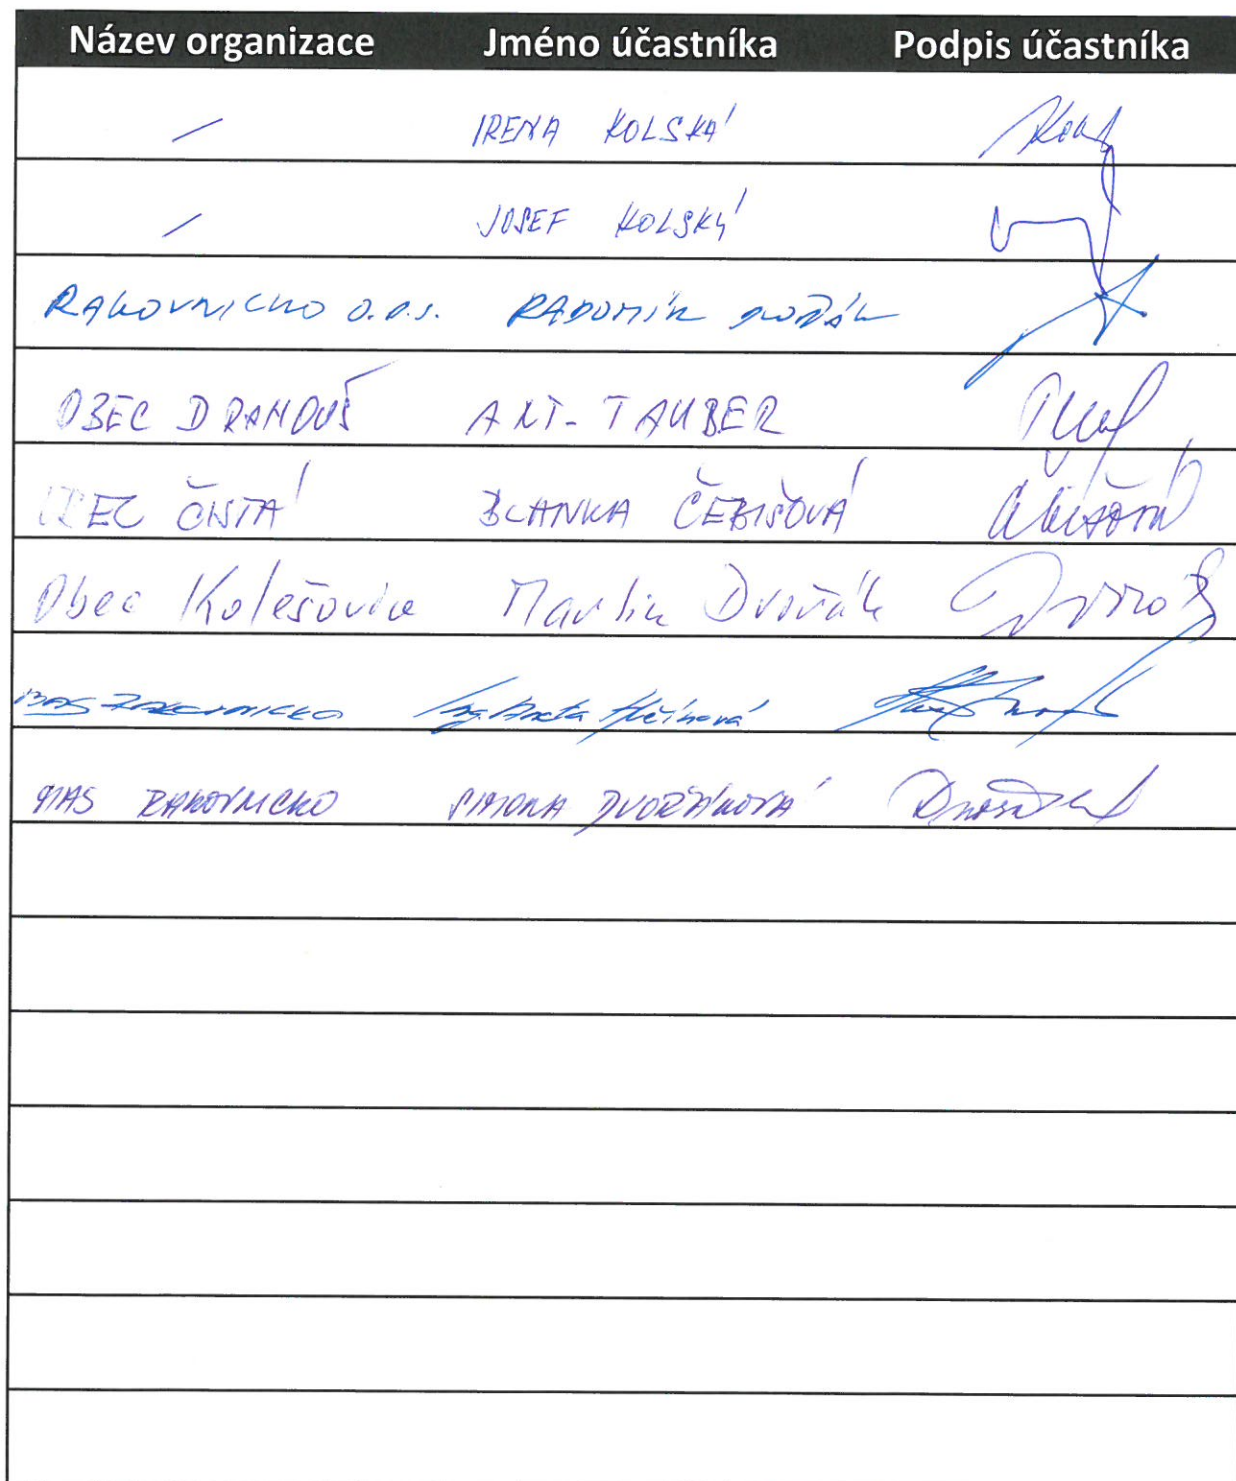 Název organizace Jméno účastníka Podpis účastníka
— IRENA KOLSKÁ
— JOSEF KOLSKÝ
RAKOVNICKO O.P.S. RADOMÍR DVOŘÁK
OBEC DRAHOUŠ ANT. TAUBER
OBEC ČISTÁ BLANKA ČEBIŠOVÁ
Obec Kolešovice Martin Dvořák
MAS RAKOVNICKO Ing.
MAS RAKOVNICKO SIMONA DVOŘÁKOVÁ